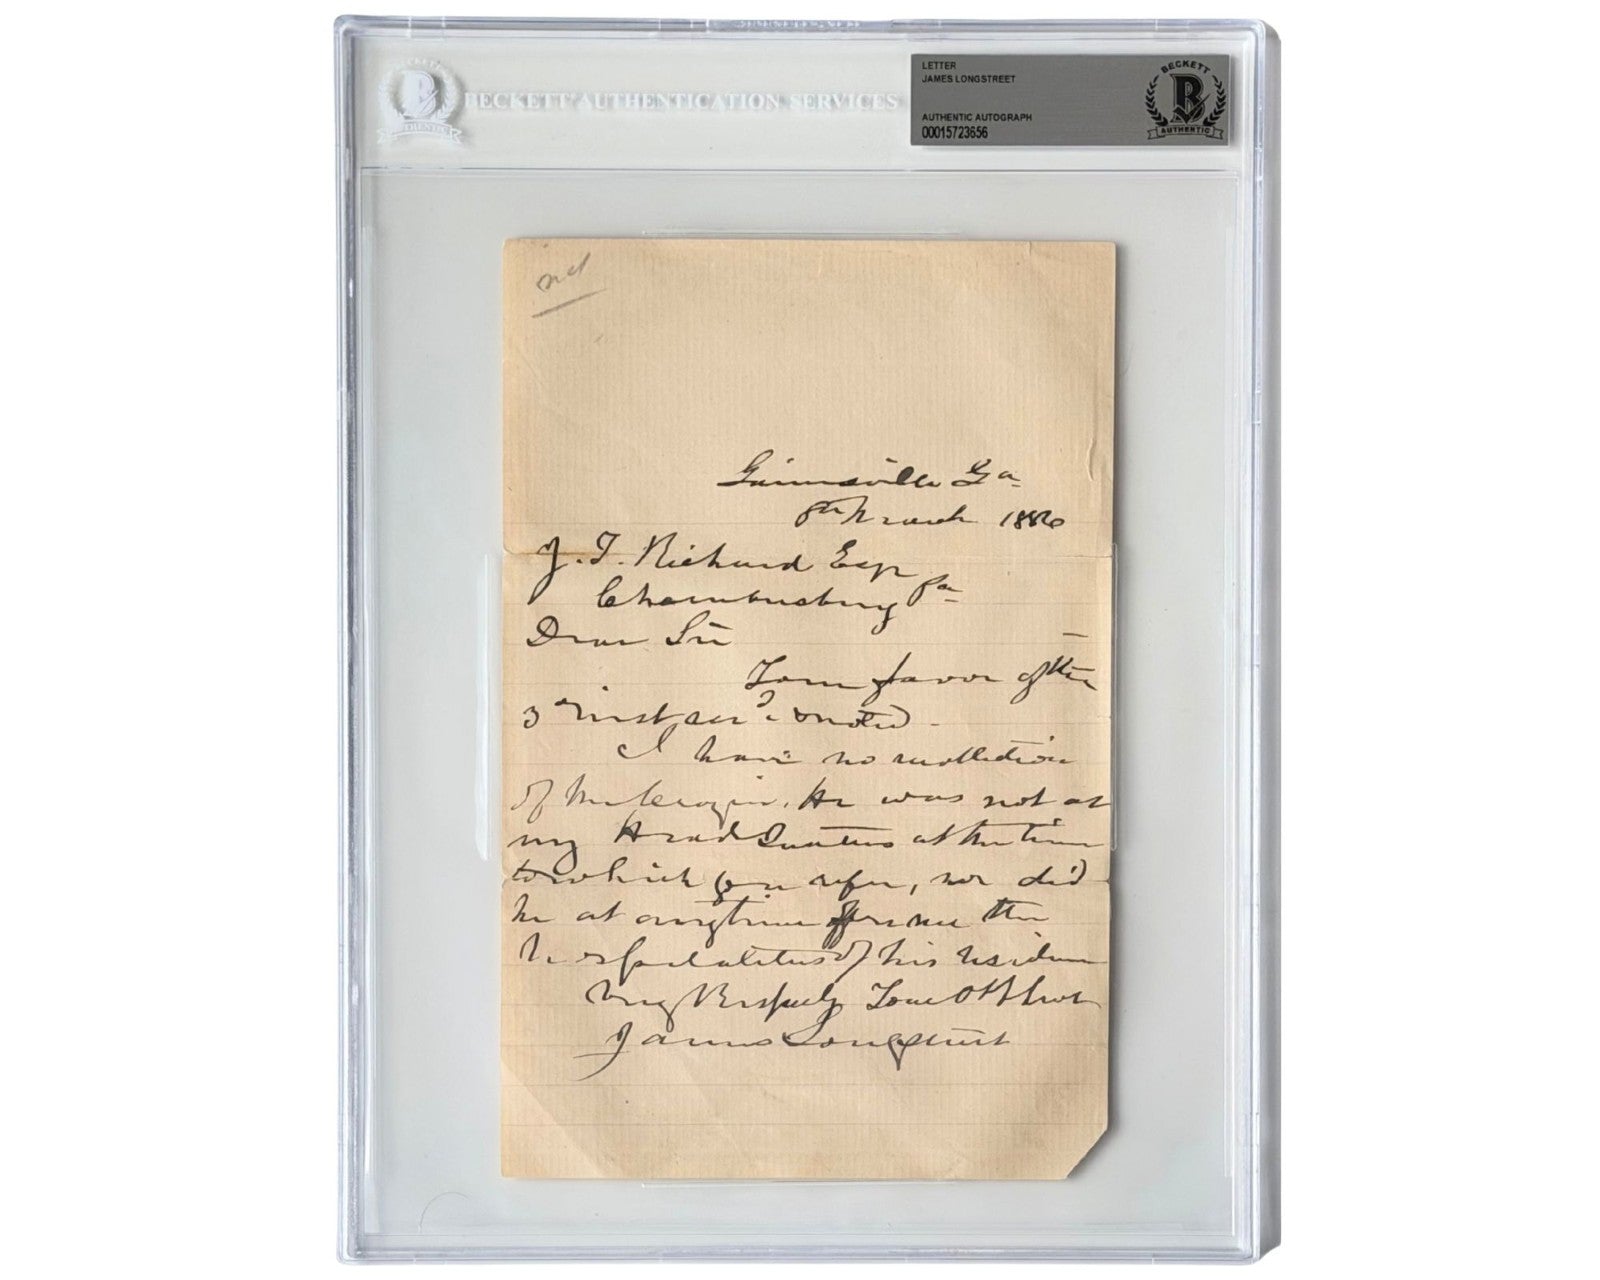 BECKETT AUTHENTICATION SERVICES
B
AUTHENTIC
LETTER
JAMES LONGSTREET
AUTHENTIC AUTOGRAPH
00015723656
BECKETT
B
AUTHENTIC
Gainesville Ga
8th March 1886
J. F. Richard Esqr
Chambersburg Pa
Dear Sir
Your favor of the
3rd inst rec'd & noted.
I have no recollection
of He was not at
my Head Quarters at the time
to which you refer, nor did
he at any time offer me the
hospitalities of his residence
Very Respectfully Your Obt Servt
James Longstreet